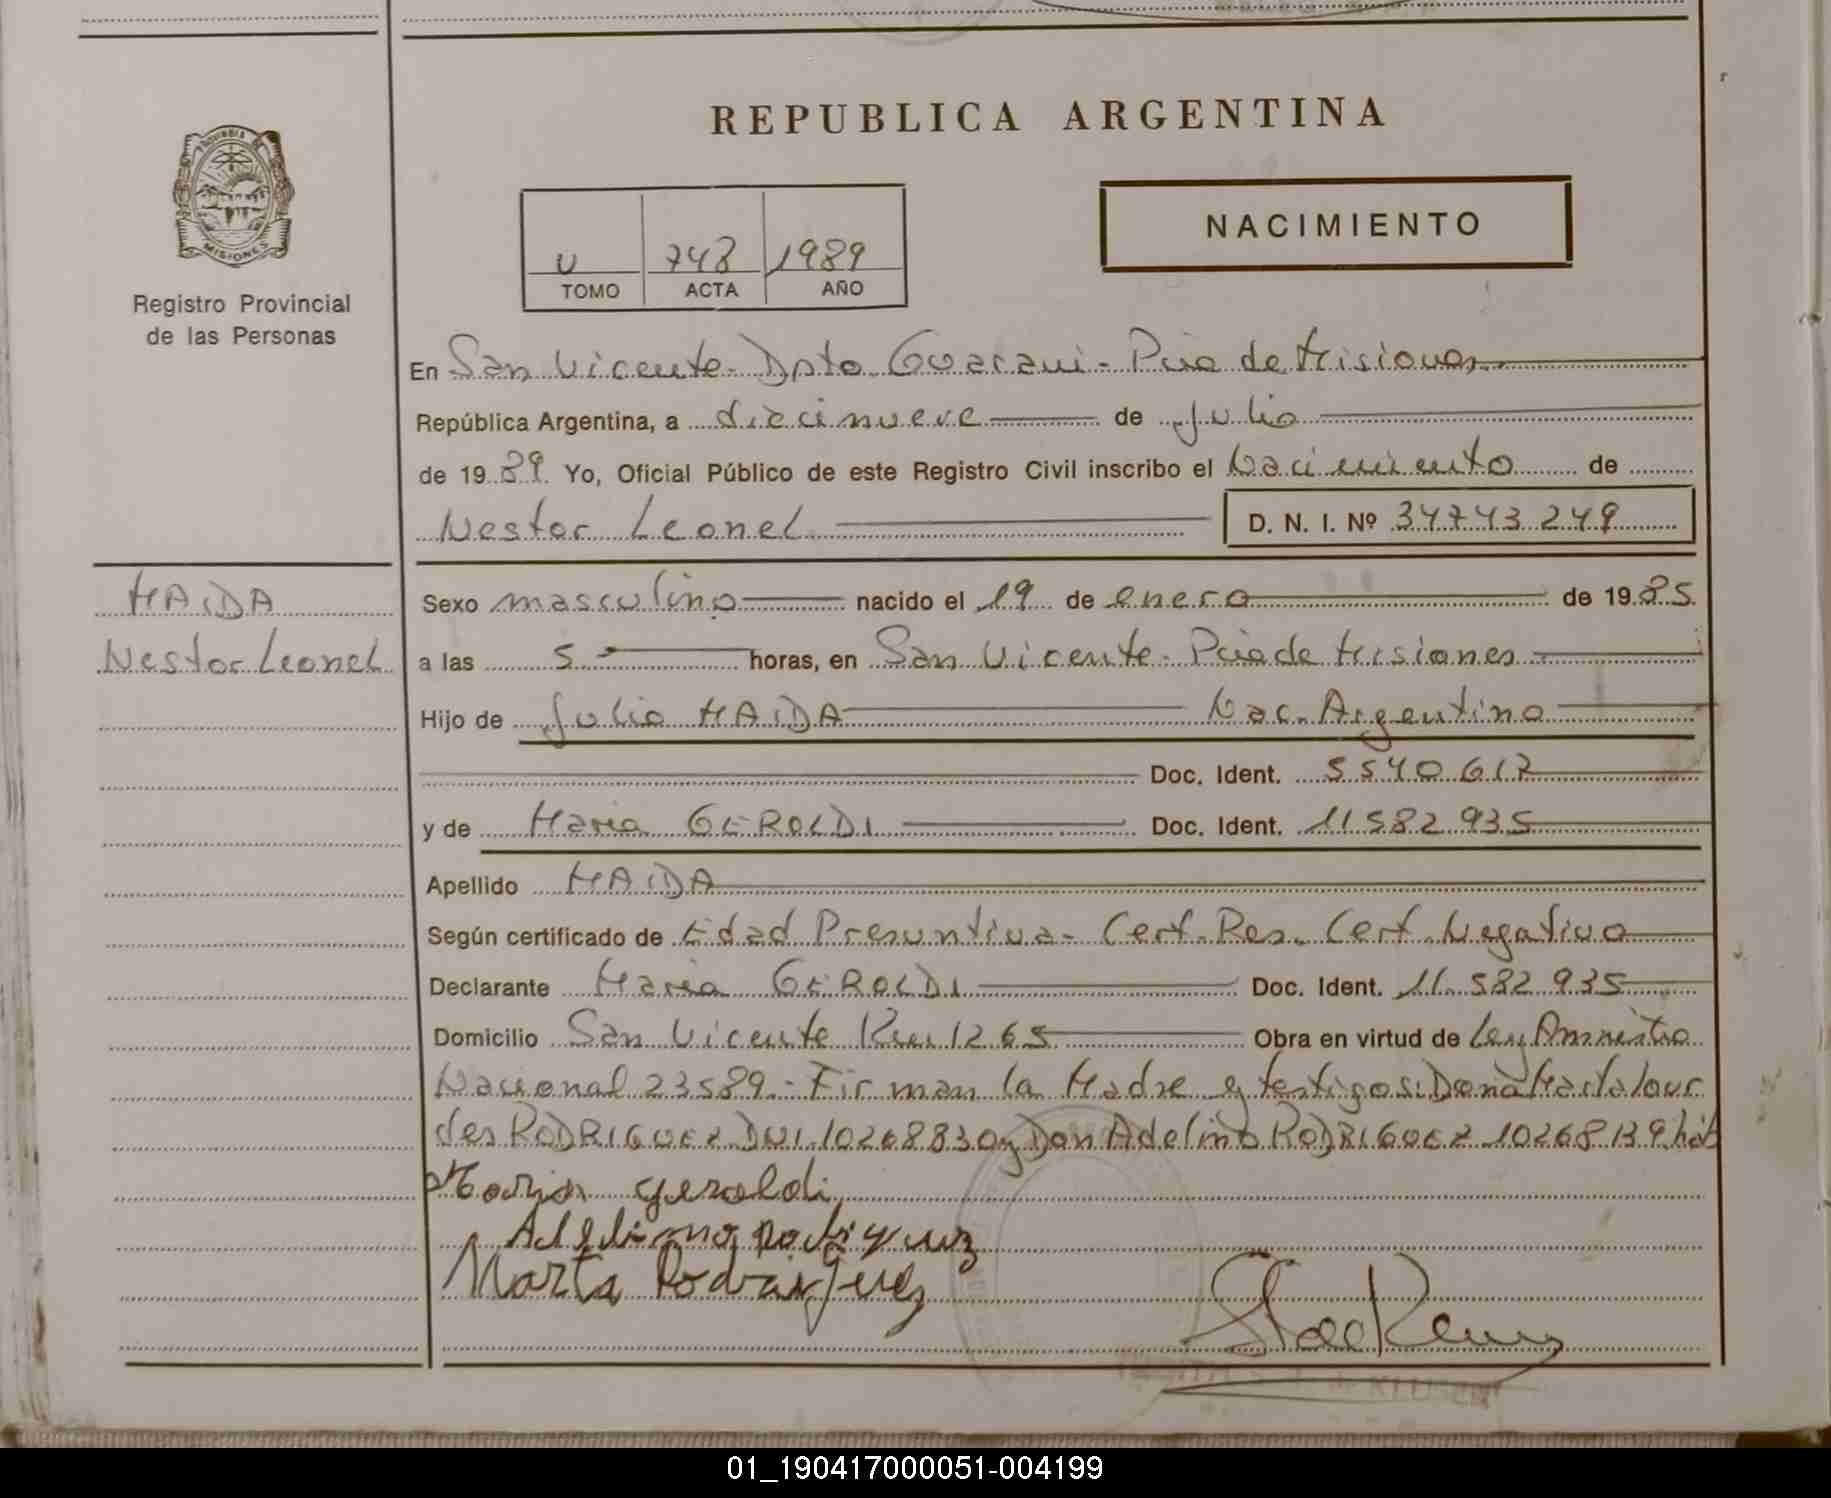 REPUBLICA ARGENTINA
PROVINCIA DE
MISIONES
Registro Provincial
de las Personas
U 743 1989
TOMO ACTA AÑO
NACIMIENTO
En San Vicente - Dpto Guarani - Pcia de Misiones
República Argentina, a diecinueve de Julio
de 1989 Yo, Oficial Público de este Registro Civil inscribo el Nacimiento de
Nestor Leonel D. N. I. Nº 34743249
MAIDA
Nestor Leonel
Sexo masculino nacido el 19 de enero de 1985
a las 5 horas, en San Vicente - Pcia de Misiones
Hijo de Julio MAIDA Nac. Argentino
Doc. Ident. 5540617
y de Maria GEROLDI Doc. Ident. 11582935
Apellido MAIDA
Según certificado de Edad Presuntiva - Cert. Res. Cert. Negativo
Declarante Maria GEROLDI Doc. Ident. 11.582935
Domicilio San Vicente Km 1265 Obra en virtud de Ley Amnistia
Nacional 23589.- Firman la Madre y testigos: Doña Marta Lour
des RODRIGUEZ DNI. 10268830 y Don Adelino RODRIGUEZ 10268139 háb
Maria geroldi
Adelino rodriguez
Marta Rodriguez
01_190417000051-004199